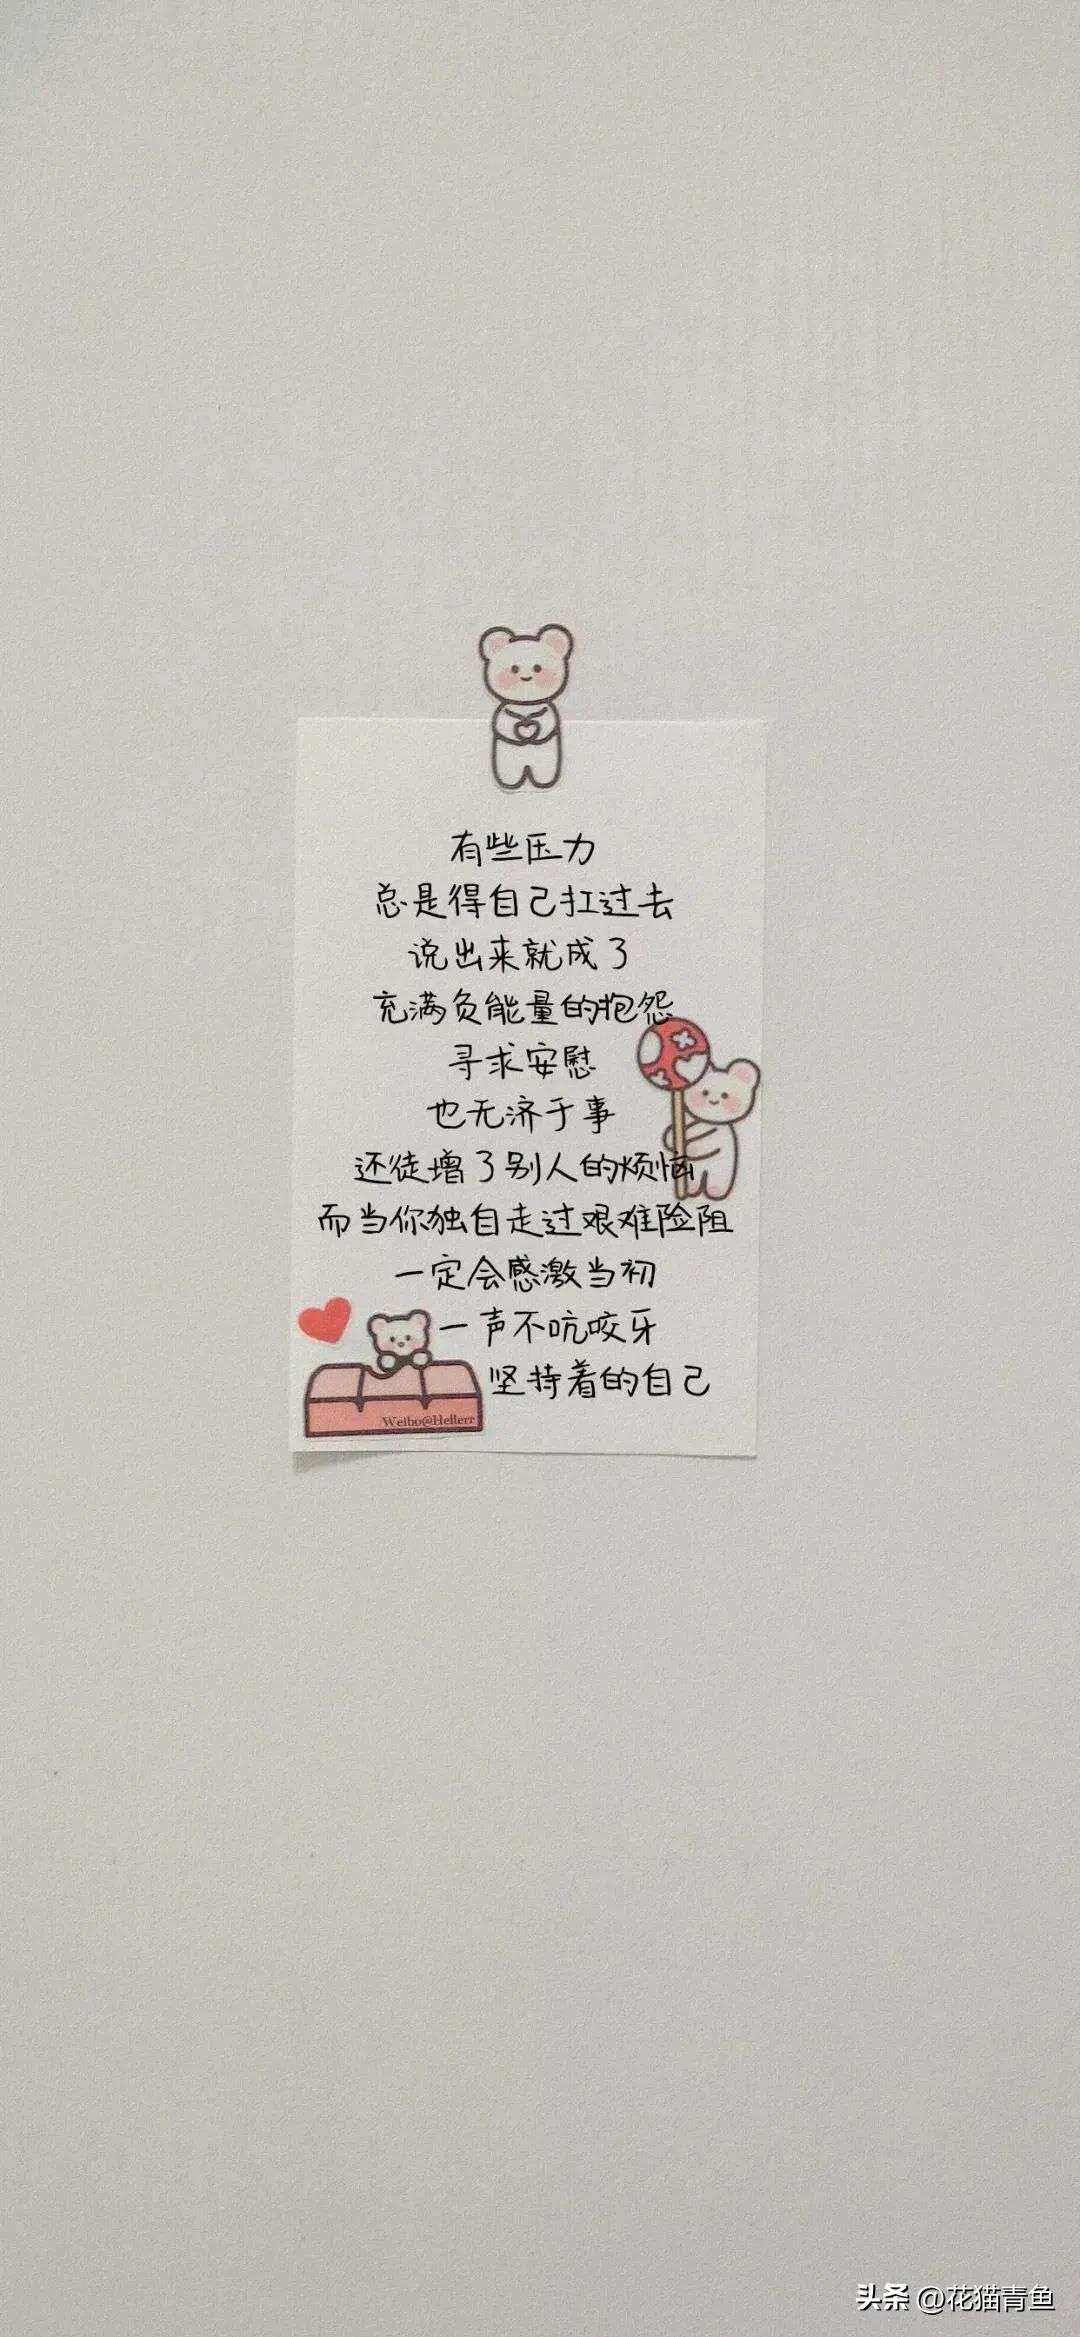 有些压力
总是得自己扛过去
说出来就成了
充满负能量的抱怨
寻求安慰
也无济于事
还徒增了别人的烦恼
而当你独自走过艰难险阻
一定会感激当初
一声不吭咬牙
坚持着的自己
Weibo@Hellerr
头条 @花猫青鱼